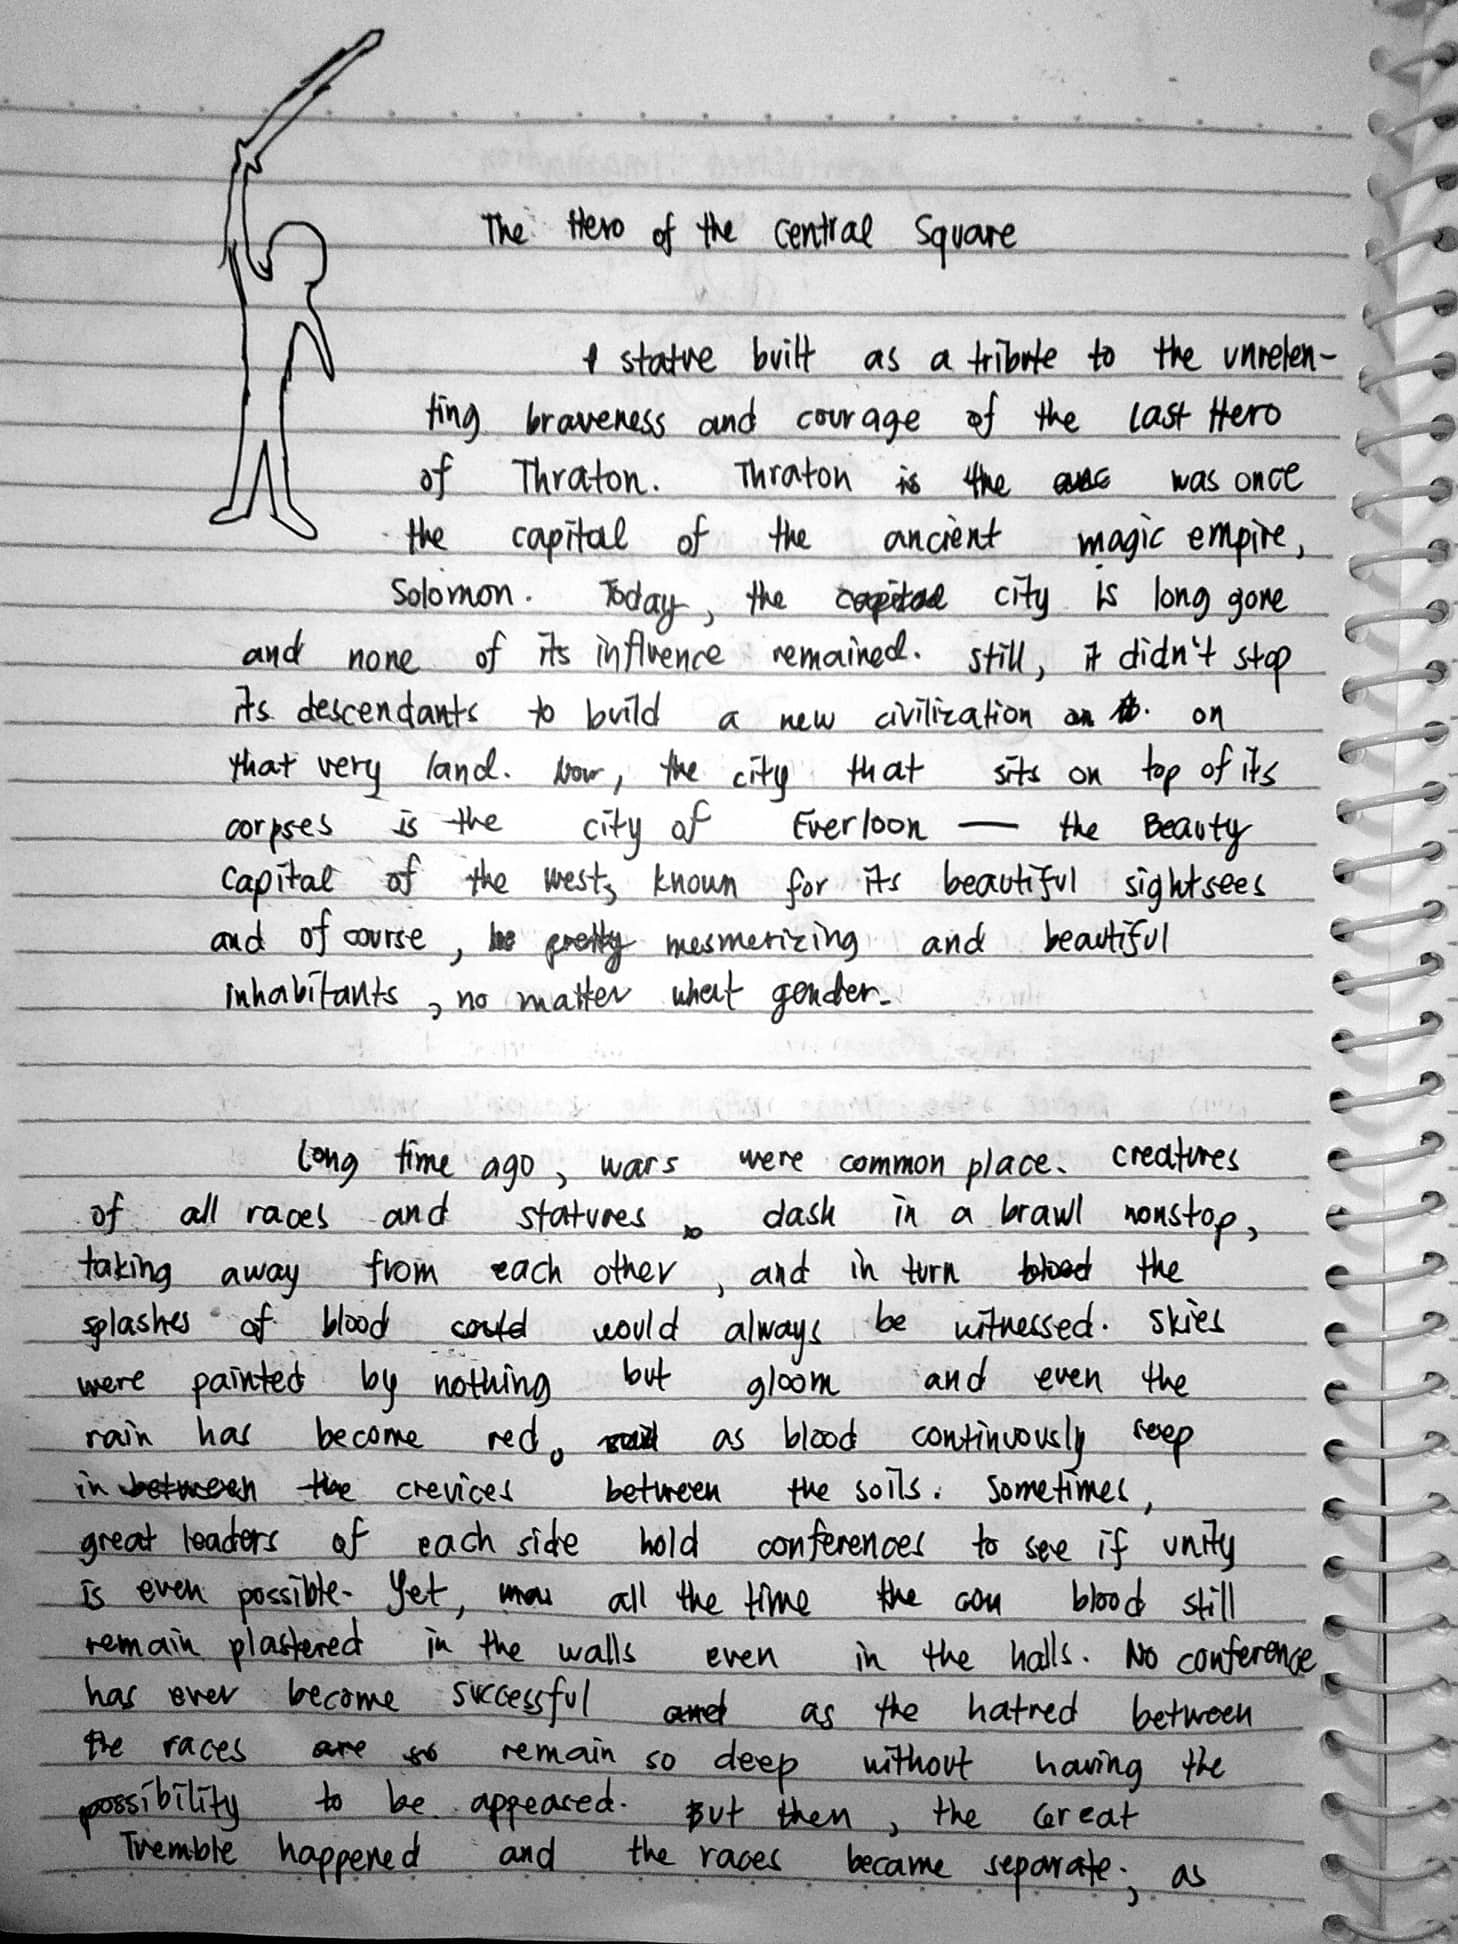 The Hero of the Central Square
A statue built as a tribute to the unrelen-
ting braveness and courage of the Last Hero
of Thraton. Thraton is the was once
the capital of the ancient magic empire,
Solomon. Today, the capital city is long gone
and none of its influence remained. Still, it didn't stop
its descendants to build a new civilization on on
that very land. Now, the city that sits on top of its
corpses is the city of Everloon — the Beauty
Capital of the West, known for its beautiful sightsees
and of course, pretty mesmerizing and beautiful
inhabitants, no matter what gender.
Long time ago, wars were common place. Creatures
of all races and statures, dash in a brawl nonstop,
taking away from each other, and in turn blood the
splashes of blood could would always be witnessed. Skies
were painted by nothing but gloom and even the
rain has become red, as blood continuously seep
in between the crevices between the soils. Sometimes,
great leaders of each side hold conferences to see if unity
is even possible. Yet, all the time the blood still
remain plastered in the walls even in the halls. No conference
has ever become successful and as the hatred between
the races are so remain so deep without having the
possibility to be appeased. But then, the Great
Tremble happened and the races became separate, as